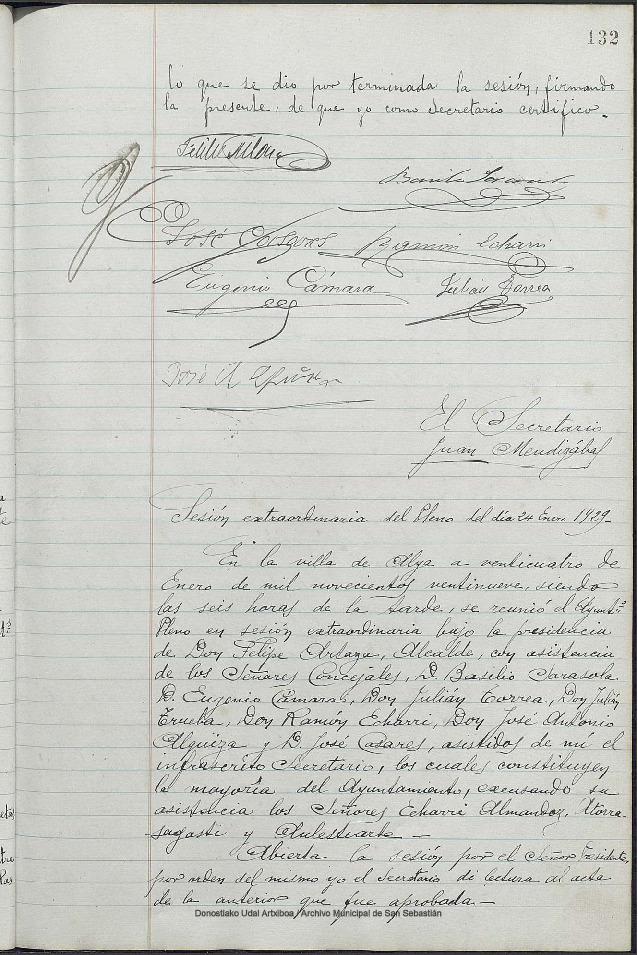 132
lo que se dio por terminada la sesión, firmando
la presente de que yo como Secretario certifico.
José Casares
Ramón Echarri
Eugenio Cámara
Julián Torrea
El Secretario
Juan Mendizábal
Sesión extraordinaria del Pleno del día 24 Enero 1929-
En la villa de Alza a venticuatro de
Enero de mil novecientos ventinueve, siendo
las seis horas de la tarde, se reunió el Ayuntº
Pleno en sesión extraordinaria bajo la presidencia
de Don Felipe Artaza, Alcalde, con asistencia
de los Señores Concejales, D. Basilio Sarasola
D. Eugenio Cámara, Don Julián Torrea, Don Julián
Trueba, Don Ramón Echarri, Don José Antonio
Algüiza y D. José Casares, asistidos de mí el
infrascrito Secretario, los cuales constituyen
la mayoría del Ayuntamiento, excusando su
asistencia los Señores Echarri Almandoz, Iturra-
sagasti y Aulestiarte —
Abierta la sesión por el Señor Presidente,
por orden del mismo yo el Secretario di lectura al acta
de la anterior que fue aprobada —
Donostiako Udal Artxiboa / Archivo Municipal de San Sebastián